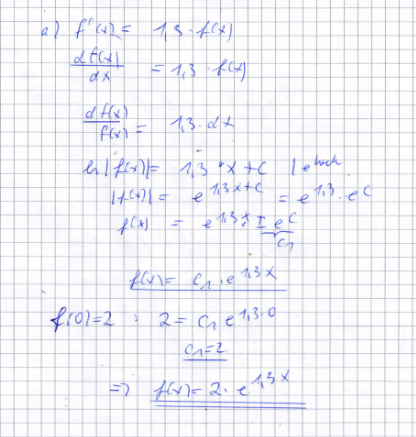 a) f'(x) = 1,3 · f(x)
df(x)/dx = 1,3 · f(x)
df(x)/f(x) = 1,3 · dx
ln|f(x)| = 1,3 · x + C | e hoch
|f(x)| = e^{1,3x+C} = e^{1,3} · e^C
f(x) = e^{1,3x} · ± e^C
c₁
f(x) = c₁ · e^{1,3x}
f(0)=2 : 2 = c₁ e^{1,3·0}
c₁=2
=> f(x) = 2 · e^{1,3x}